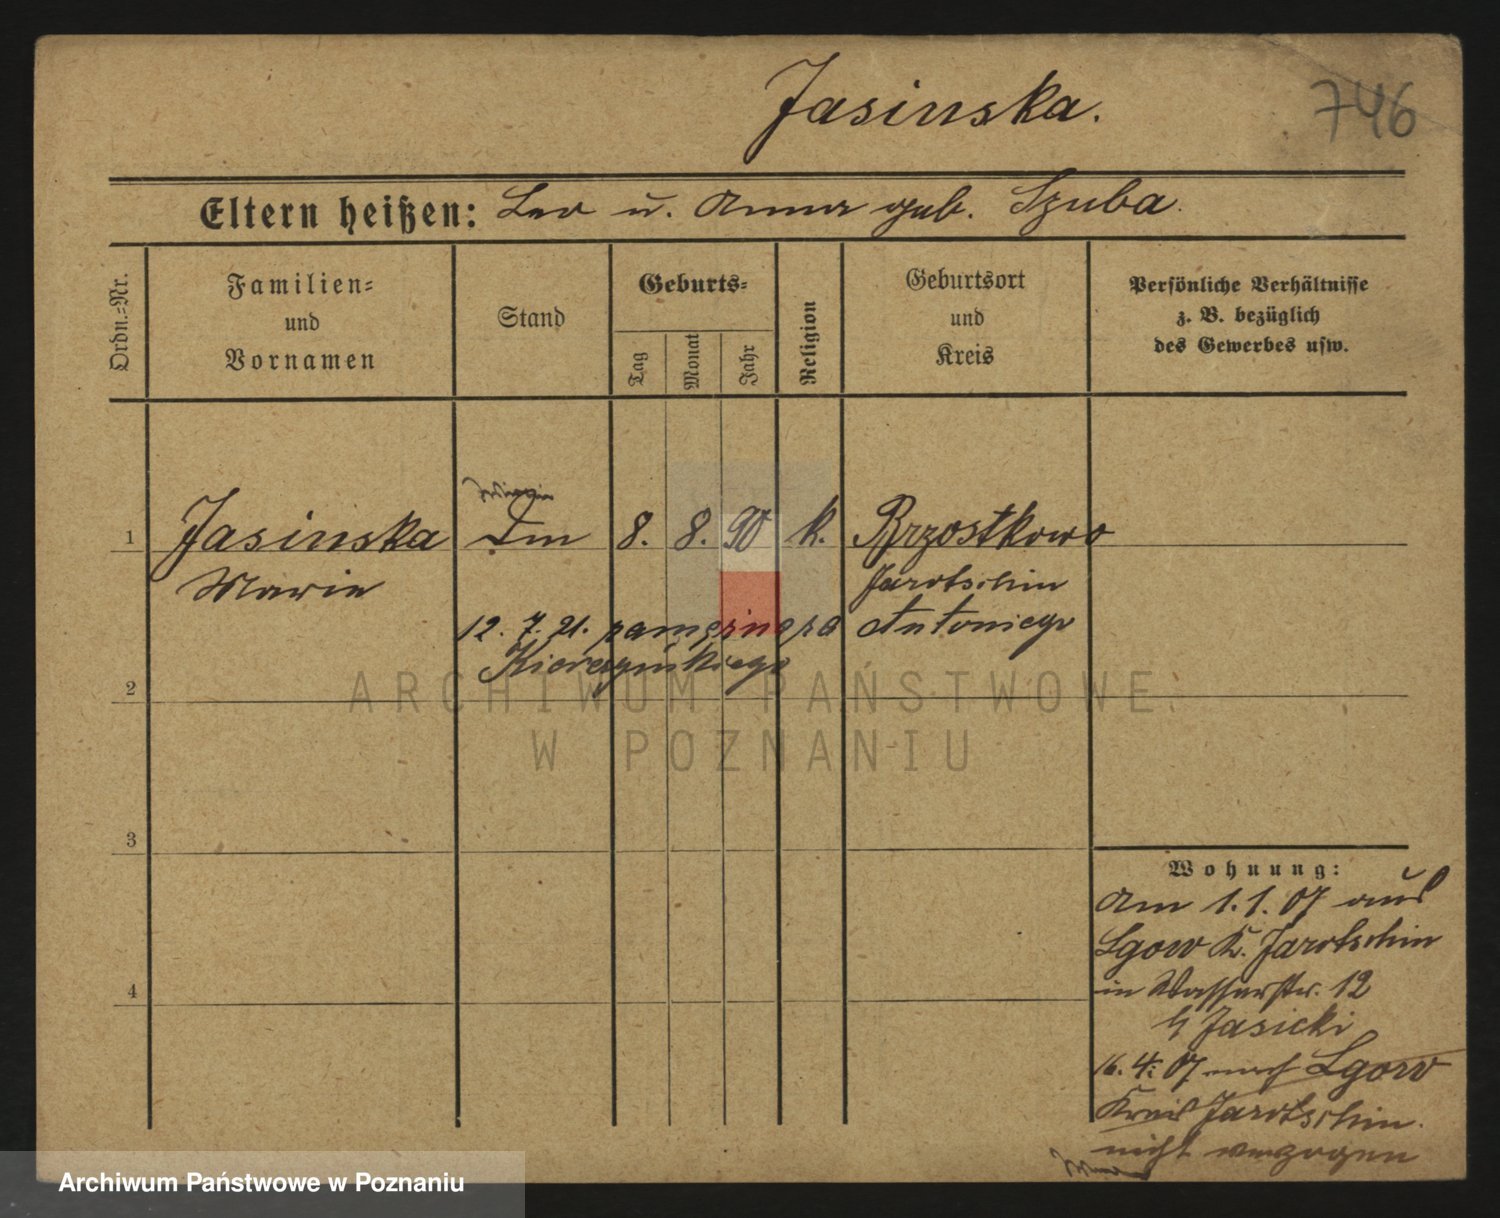 Jasinska.
746
Eltern heißen: Leo u. Anna geb. Szuba.
Ordn.-Nr.
Familien-
und
Vornamen
Stand
Geburts-
Tag
Monat
Jahr
Religion
Geburtsort
und
Kreis
Persönliche Verhältnisse
z. B. bezüglich
des Gewerbes usw.
1 Jasinska 8. 8. 90 k. Brzostkowo
Marie Jarotschin
12. 7. 21. Antoniego
2
3
4
ARCHIWUM PAŃSTWOWE
W POZNANIU
Wohnung:
Am 1.1.07 aus
Lgow K. Jarotschin
in Wasserstr. 12
Jasicki
16. 4. 07 nach Lgow
Kreis Jarotschin.
nicht verzogen
Archiwum Państwowe w Poznaniu